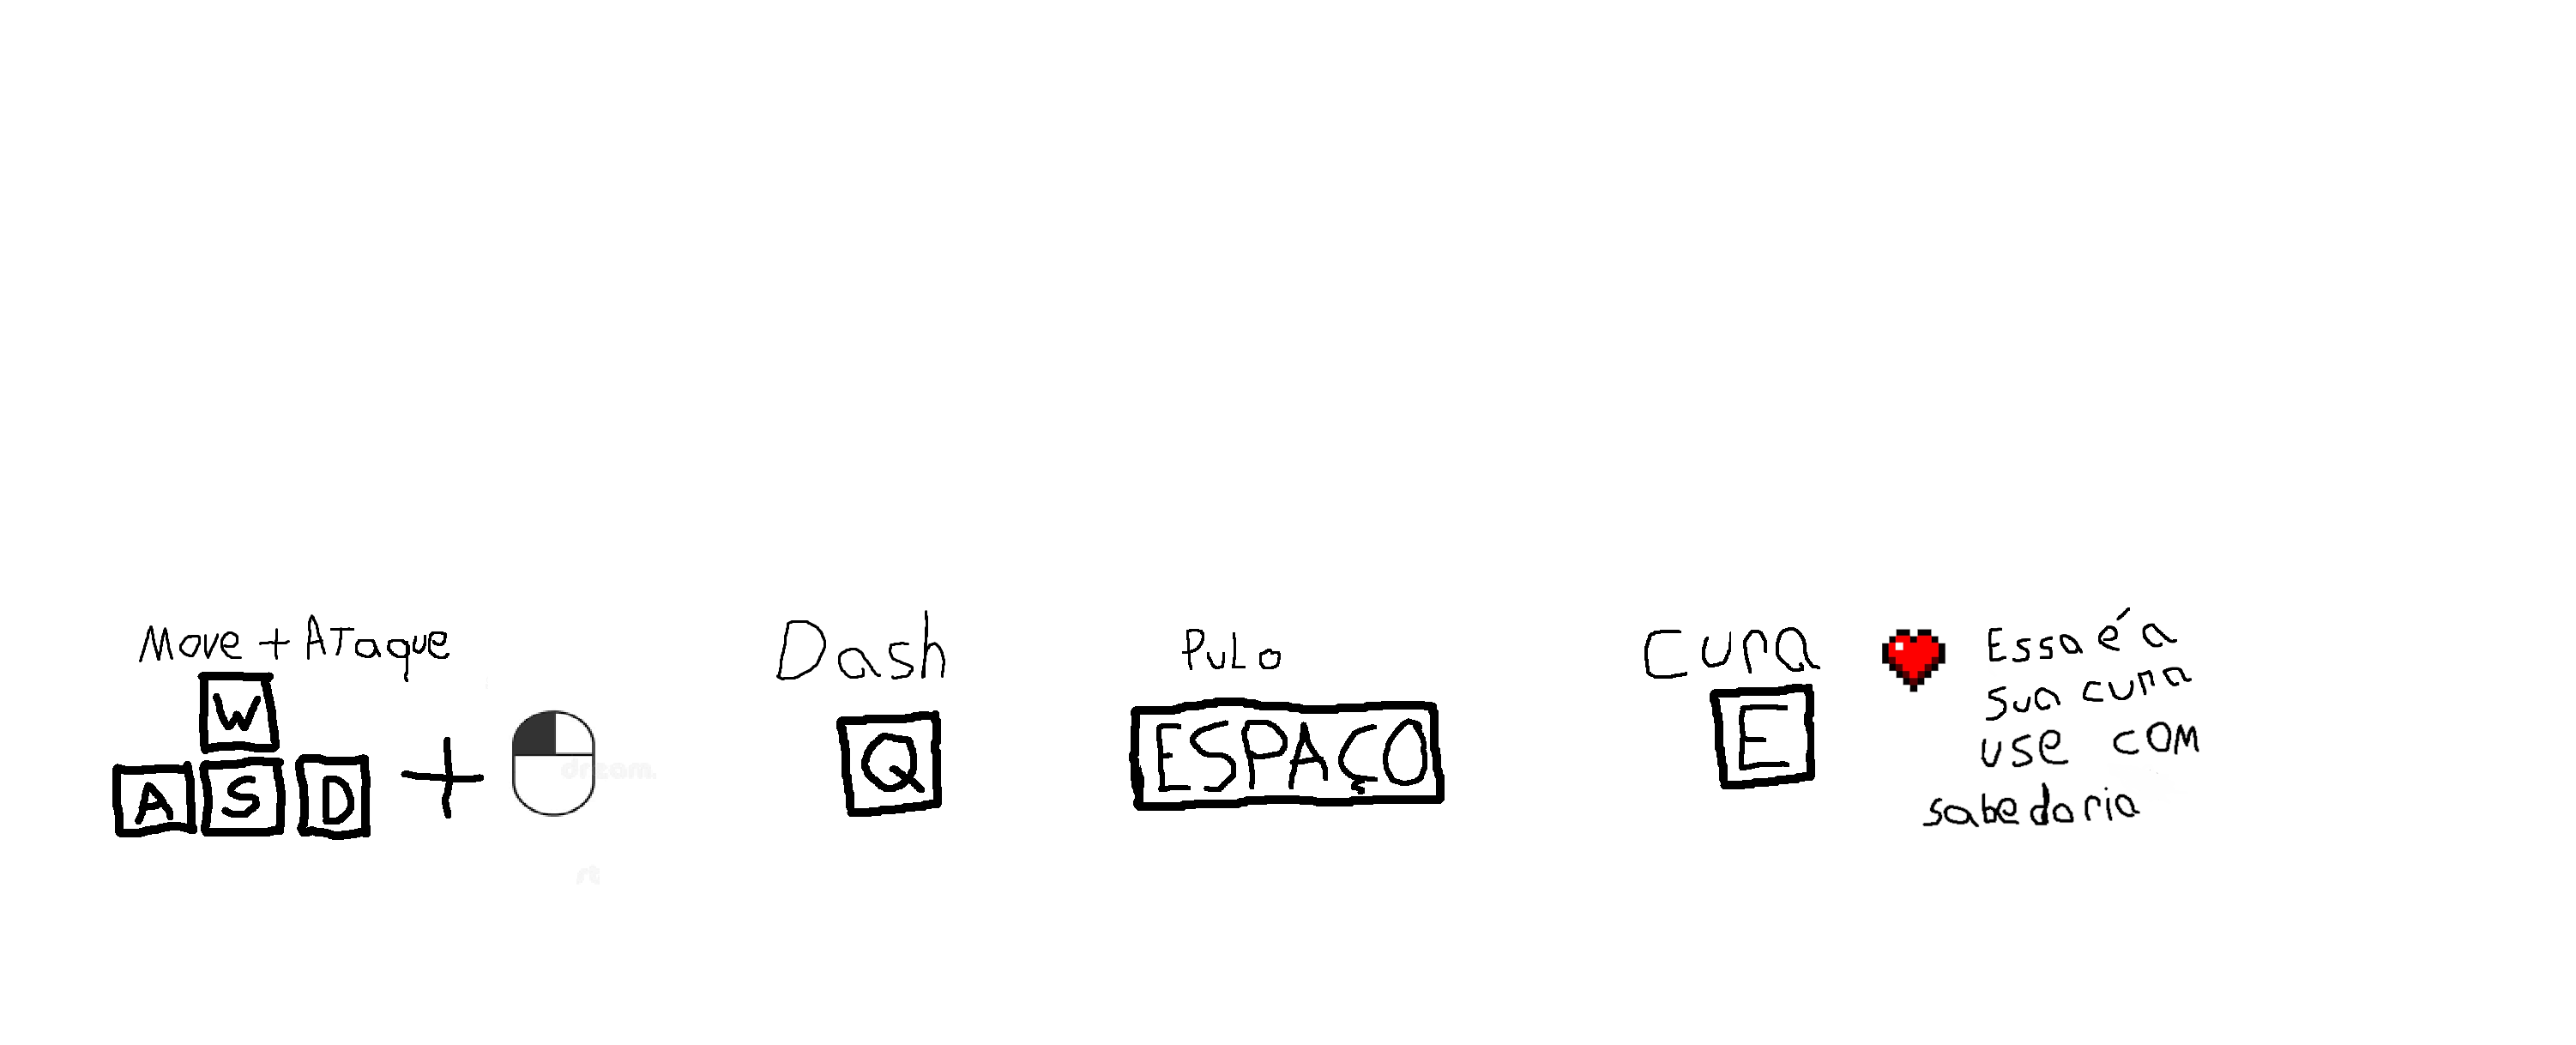 Move + ATaque
W
A S D +
dream.
st
Dash
Q
PuLo
ESPAÇO
Cura
E
Essa é a
sua cura
use com
sabedoria